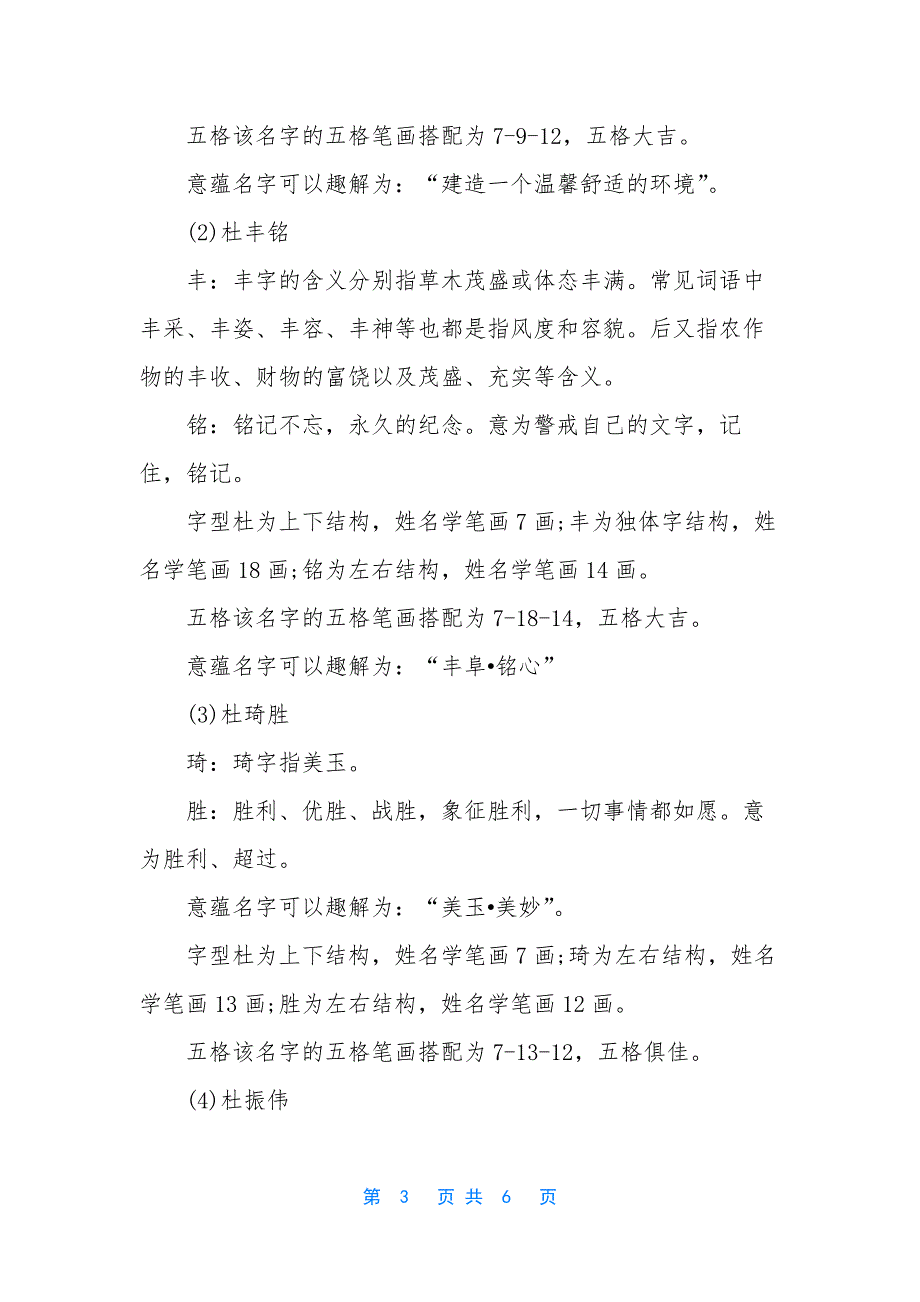 五格该名字的五格笔画搭配为7-9-12，五格大吉。
意蕴名字可以趣解为：“建造一个温馨舒适的环境”。
(2)杜丰铭
丰：丰字的含义分别指草木茂盛或体态丰满。常见词语中
丰采、丰姿、丰容、丰神等也都是指风度和容貌。后又指农作
物的丰收、财物的富饶以及茂盛、充实等含义。
铭：铭记不忘，永久的纪念。意为警戒自己的文字，记
住，铭记。
字型杜为上下结构，姓名学笔画7画;丰为独体字结构，姓
名学笔画18画;铭为左右结构，姓名学笔画14画。
五格该名字的五格笔画搭配为7-18-14，五格大吉。
意蕴名字可以趣解为：“丰阜•铭心”
(3)杜琦胜
琦：琦字指美玉。
胜：胜利、优胜、战胜，象征胜利，一切事情都如愿。意
为胜利、超过。
意蕴名字可以趣解为：“美玉•美妙”。
字型杜为上下结构，姓名学笔画7画;琦为左右结构，姓名
学笔画13画;胜为左右结构，姓名学笔画12画。
五格该名字的五格笔画搭配为7-13-12，五格俱佳。
(4)杜振伟
第 3 页 共 6 页